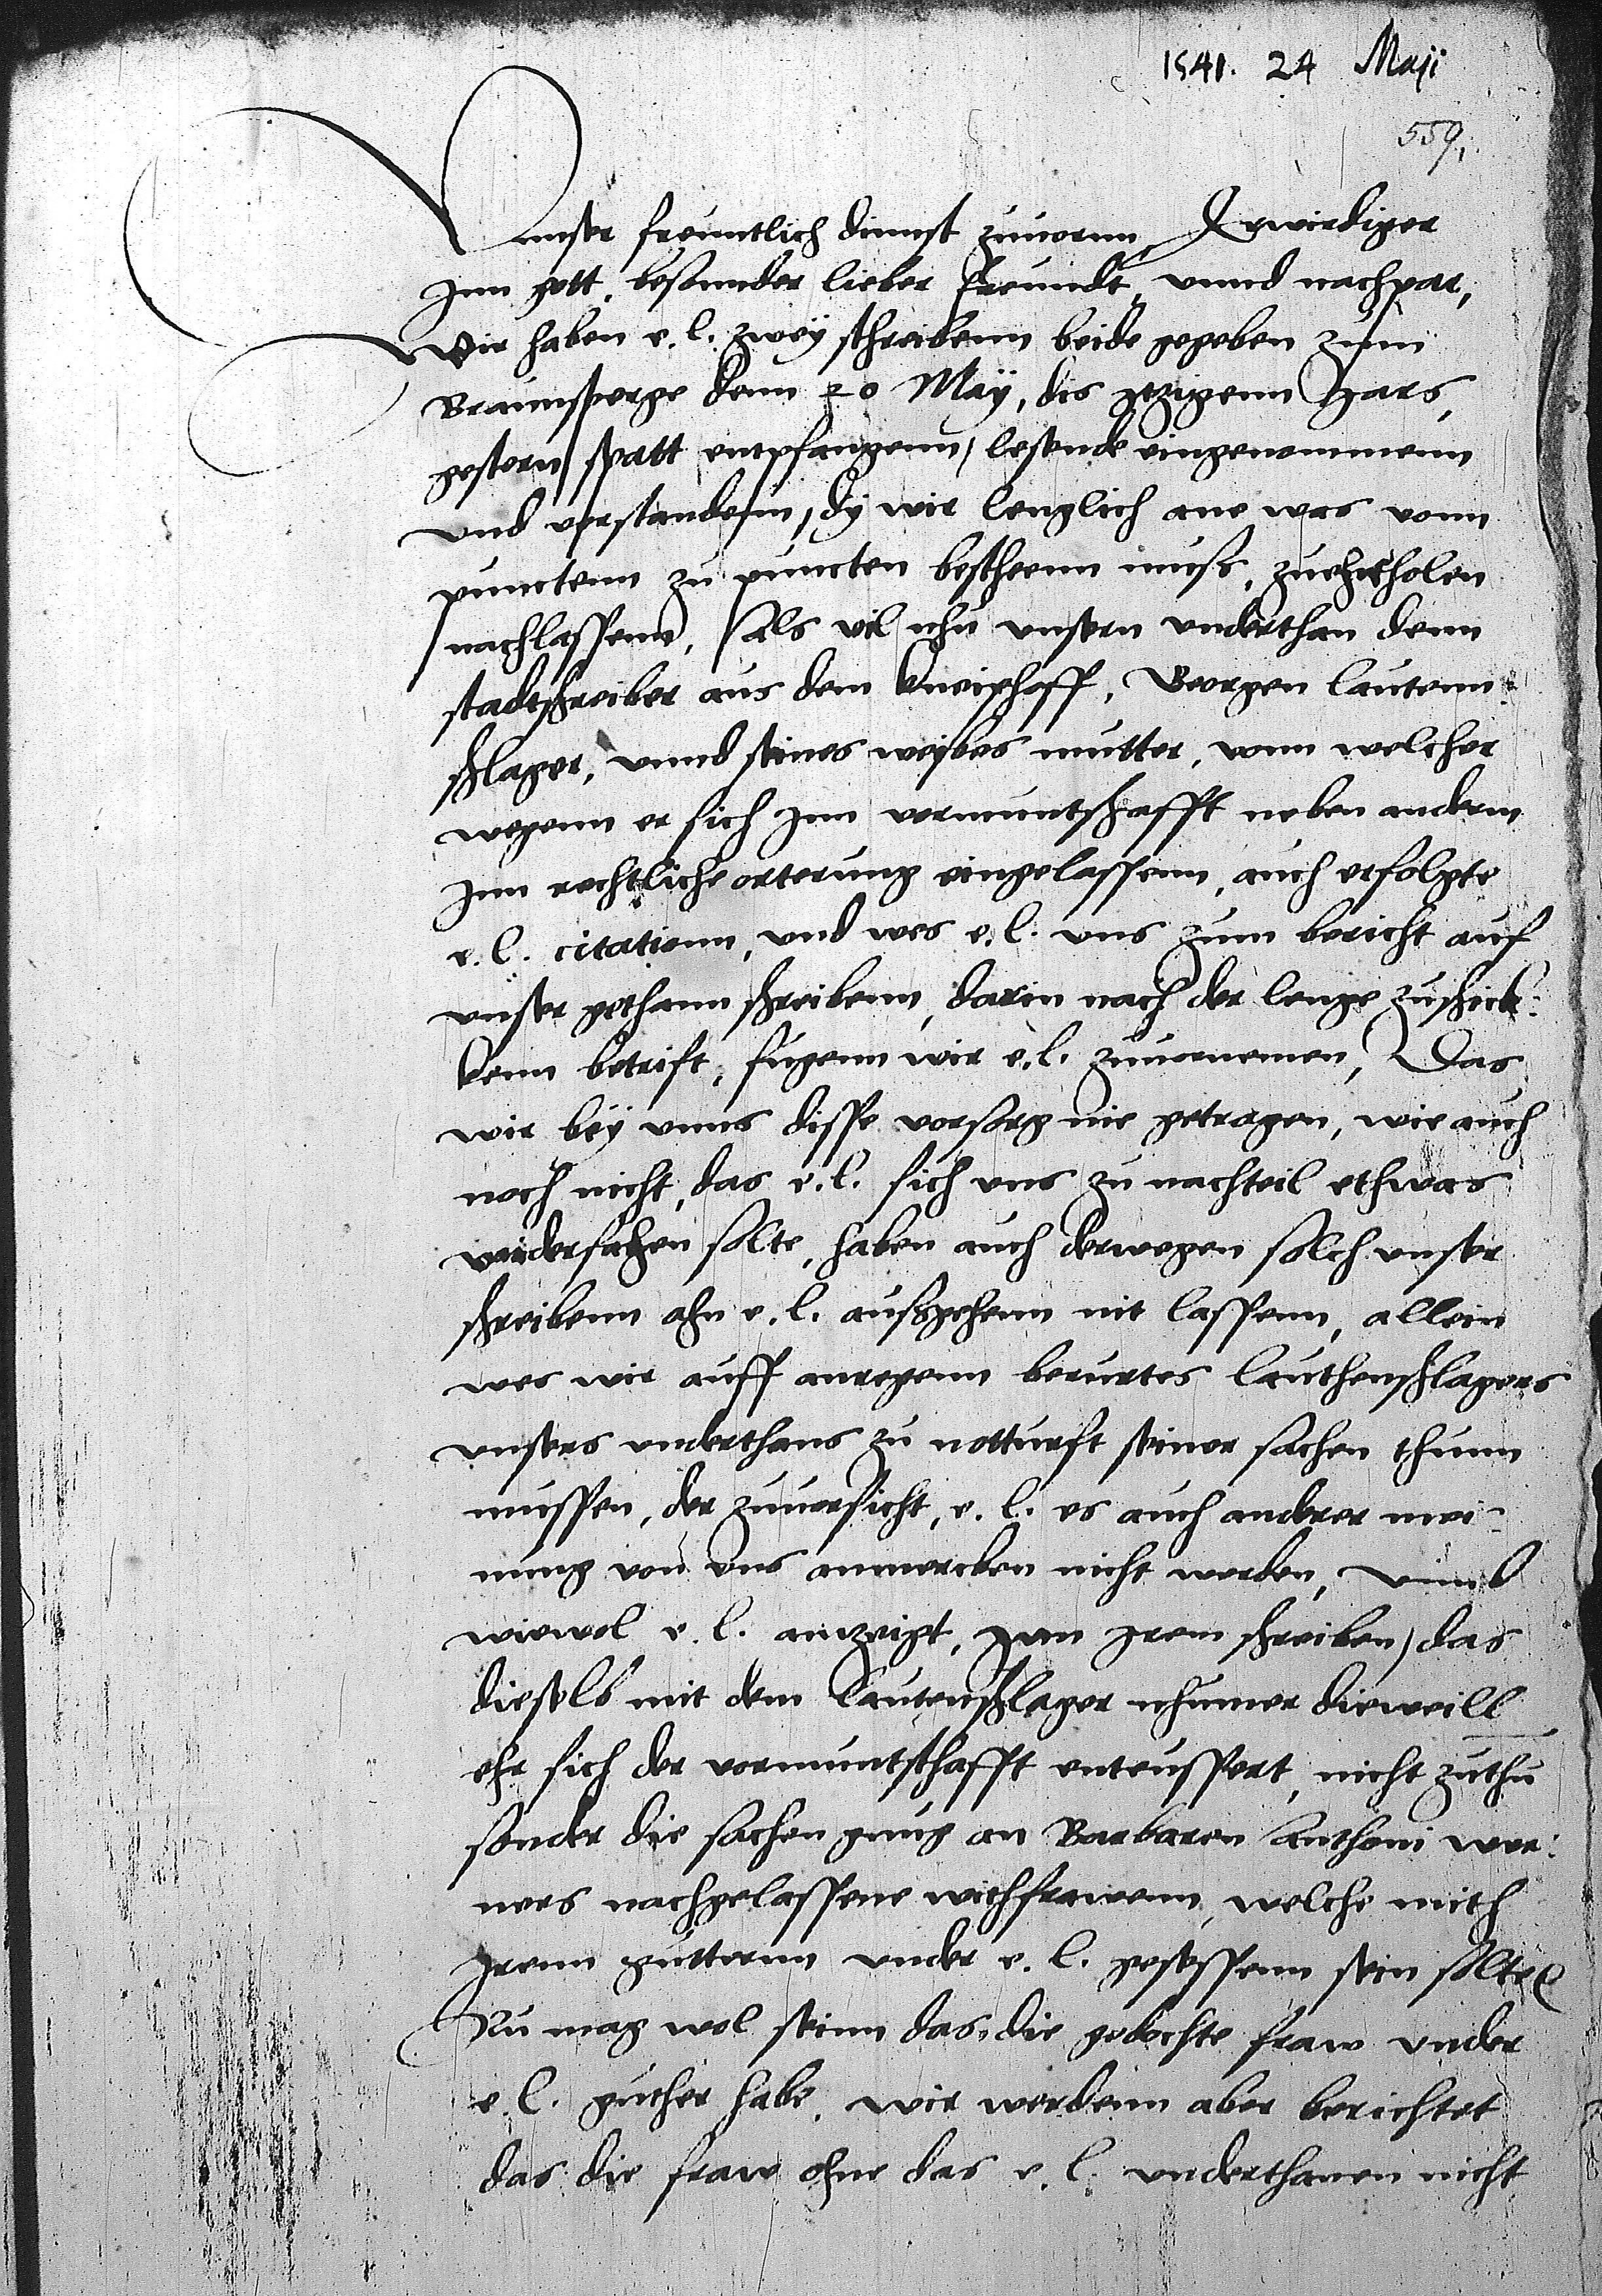 1541. 24 Maji
559.
Vnnser freuntlich dinnst zuuornn, Erwirdiger
Jnn gott, besonnder lieber freundt, vnnd nachpar,
Wir haben e. l. zwey schreibenn beide gegeben zum
Braunsperge denn 20 Maÿ, dis itzigenn Jars,
gestern spatt entpfangenn, lesende eingenommenn
vnd verstandenn, dy wir lenglich ane was vonn
punctenn zu puncten bescheenn muss, zuerholen
nachlassenn, Als vil nhu vnsern vnderthan denn
stadtschreiber aus dem kneiphoff, Georgen lautenn:
schlager, vnnd seines weibes mutter, vonn welcher
wegenn er sich Jnn vormuntschafft neben andern
Jnn rechtliche orterung eingelassenn, auch erfolgte
e. l. citationn, vnd wes e. l. vns zum bericht auf
vnser gethann schreibenn, darin nach der lenge zuschick:
kenn betrift, fugenn wir e. l. zuuornemen, Das
wir bey vnns disse vorsorg nie getragen, wie auch
noch nicht, das e. l. sich vns zu nachteil ethwas
solte, haben auch derwegen solch vnser
schreibenn ahn e. l. aussgehenn nit lassenn, allein
wes wir auff anregenn berurtes lauthenschlagers
vnsers vnderthans zu notturft seiner sachen thunn
mussen, der zuuorsicht, e. l. es auch anderer mei¬
nung von vns anmercken nicht werden, vnnd
wiewol e. l. anzeigt, Jnn Jrem schreiben, das
dieselb mit dem Lautenschlager nhumer dieweill
ehr sich der vormuntschafft enteussert, nicht zuthu
sonder die sachen gnug an Barbaren Anthoni wer:
ners nachgelassene withfrawenn, welche mith
Jrenn gutternn vnder e. l. gesessenn sein solte
Nu mag wol seinn das die gedochte fraw vnder
e. l. guther habe, wir werdenn aber berichtet
das die fraw ohne das e. l. vnderthanen nicht